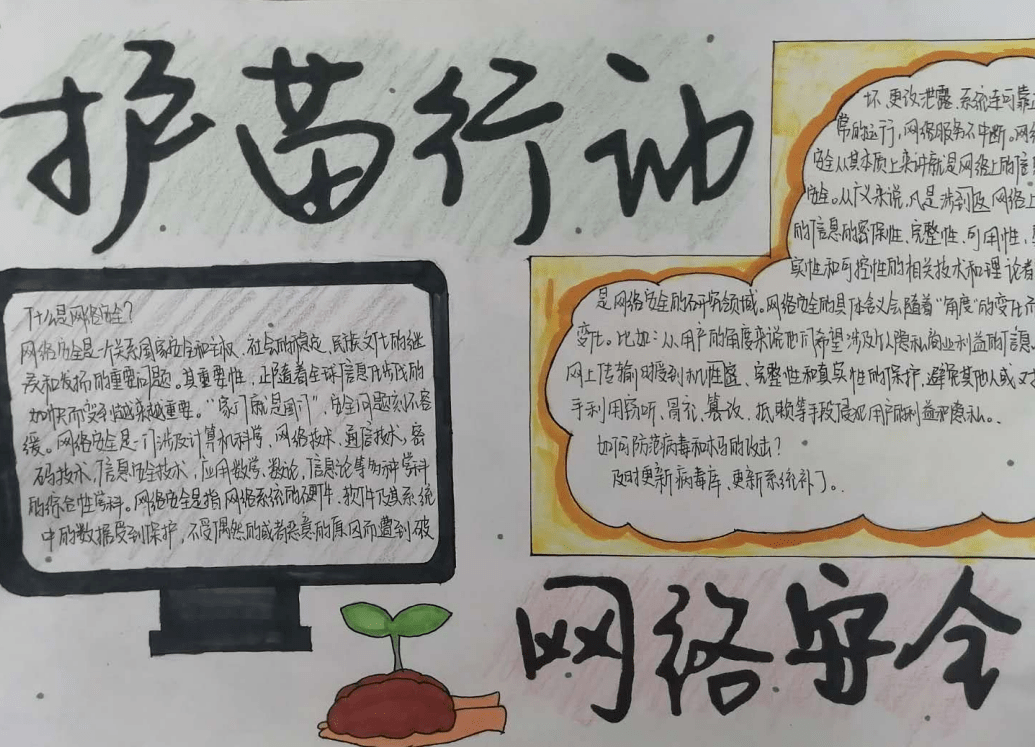 护苗行动
什么是网络安全?
网络安全是一个关系国家安全和主权、社会的稳定、民族文化的继
承和发扬的重要问题。其重要性,正随着全球信息化步伐的
加快而变到越来越重要。“家门就是国门”,安全问题刻不容
缓。网络安全是一门涉及计算机科学、网络技术、通信技术、密
码技术、信息安全技术、应用数学、数论、信息论等多种学科
的综合性学科。网络安全是指网络系统的硬件、软件及其系统
中的数据受到保护,不受偶然的或者恶意的原因而遭到破
坏、更改、泄露、系统连可靠正
常的运行,网络服务不中断。网络
安全从其本质上来讲就是网络上的信息
安全。从广义来说,凡是涉到及网络上
的信息的密保性、完整性、可用性、真
实性和可控性的相关技术和理论者
是网络安全的研究领域。网络安全的具体含义会随着“角度”的变化而
变化。比如:从用户的角度来说他们希望涉及个人隐私商业利益的信息
网上传输时受到机性密、完整性和真实性的保护,避免其他人或又
手利用窃听、冒论、篡改、抵赖等手段侵犯用户的利益和隐私。
如何防范病毒和木马的攻击?
及时更新病毒库、更新系统补丁。
网络安全